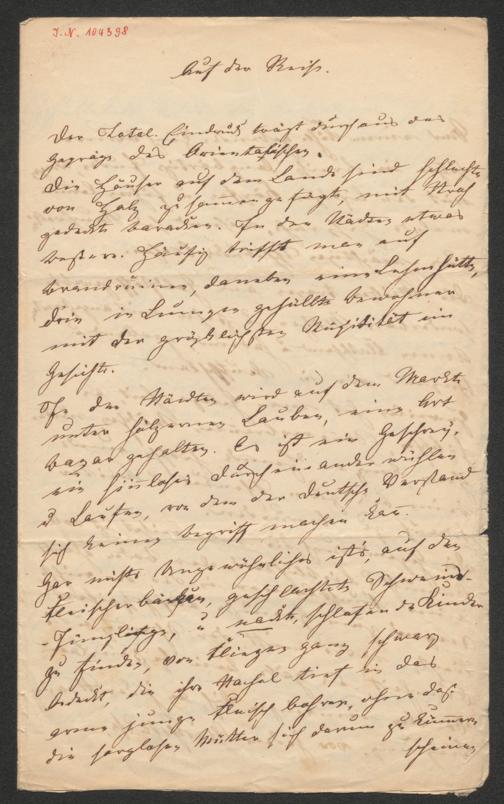 J.N. 104398
Auf der Reise.
Der Total-Eindruck trägt durchaus das
Gepräge des Orientalischen.
Die Häuser auf dem Lande sind schlechte
von Holz zusammengefügte, mit Stroh
gedeckte Baracken. In den Städten etwas
bessere. Häufig trifft man auf
Brandruinen, daneben eine Lehmhütte,
drin in Lumpen gehüllte Bewohner
mit der gräßlichsten im
Gesichte.
In den Städten wird auf dem Markte
unter hölzernen Lauben, eine Art
Bazar gehalten. Es ist ein Geschrey,
ein sinnloses durcheinander wühlen
u Laufen, von dem der deutsche Verstand
sich keinen Begriff machen kan.
Gar nichts Ungewöhnliches ist's, auf den
Fleischerbänken, geschlachtete Schweine
-Jünglinge, u nackte, schlafende Kinder
zu finden, von Fliegen ganz schwarz
bedeckt, die ihre Stachel tief in das
arme junge Fleisch bohren, ohne daß
die sorglosen Mütter sich darum zu kümern
scheinen